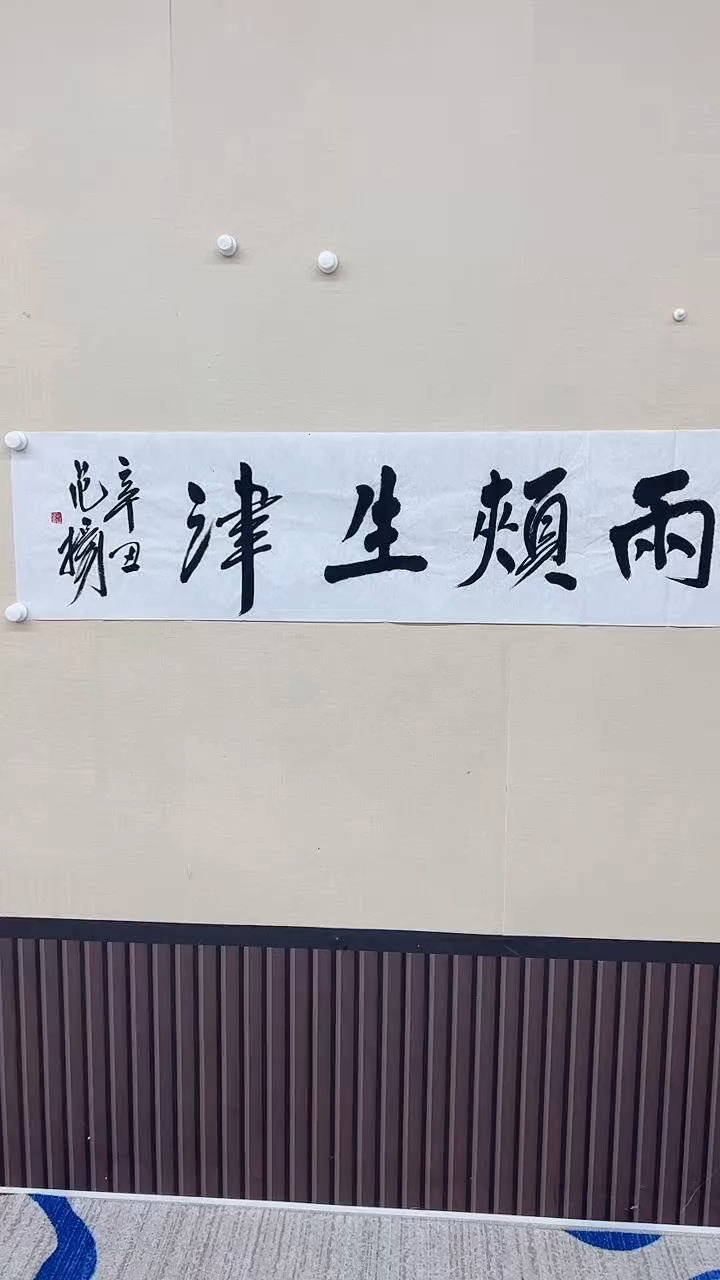 兩頰生津
辛丑
范揚